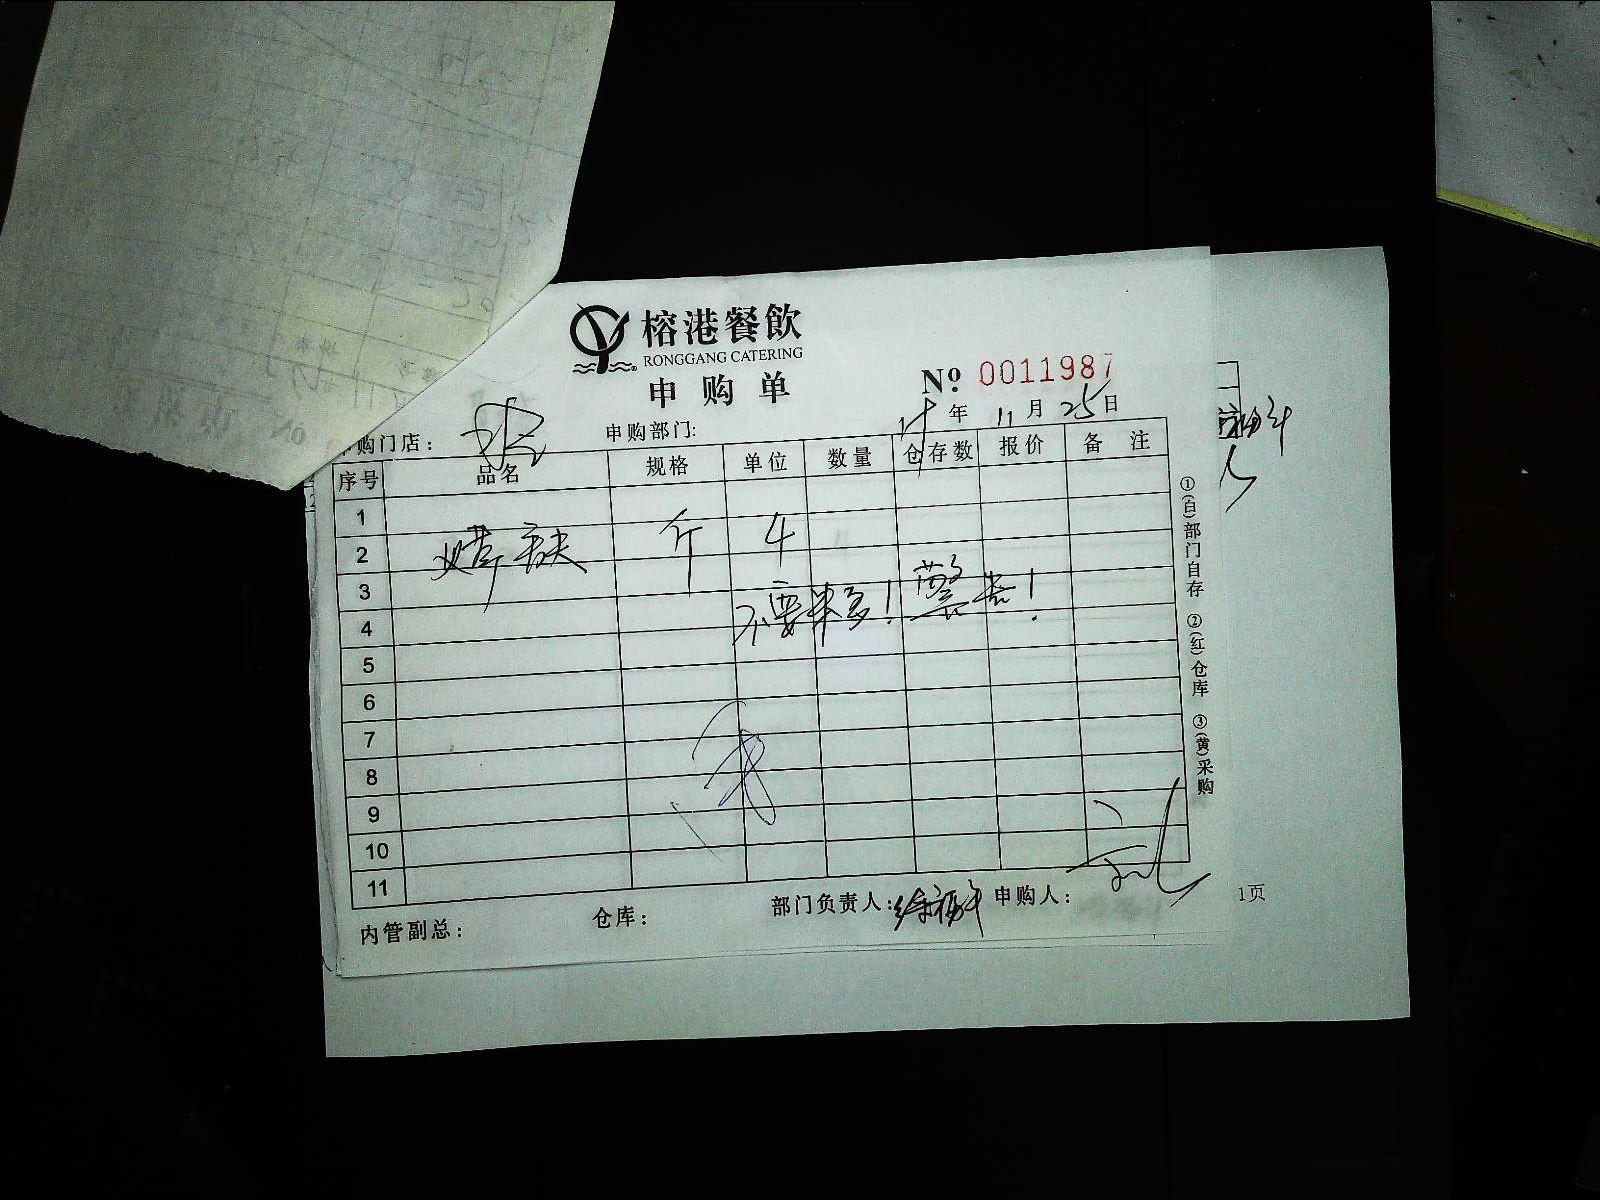 榕港餐飲
RONGGANG CATERING
申购单
Nº 0011987
年 11 月 25 日
购门店：
申购部门:
序号 品名 规格 单位 数量 仓存数 报价 备注
1
2 斤 4
3
不要来多！警告！
4
5
6
7
8
9
10
11
内管副总：
仓库：
部门负责人：徐福年
申购人：
①(白)部门自存 ②(红)仓库 ③(黄)采购
1页